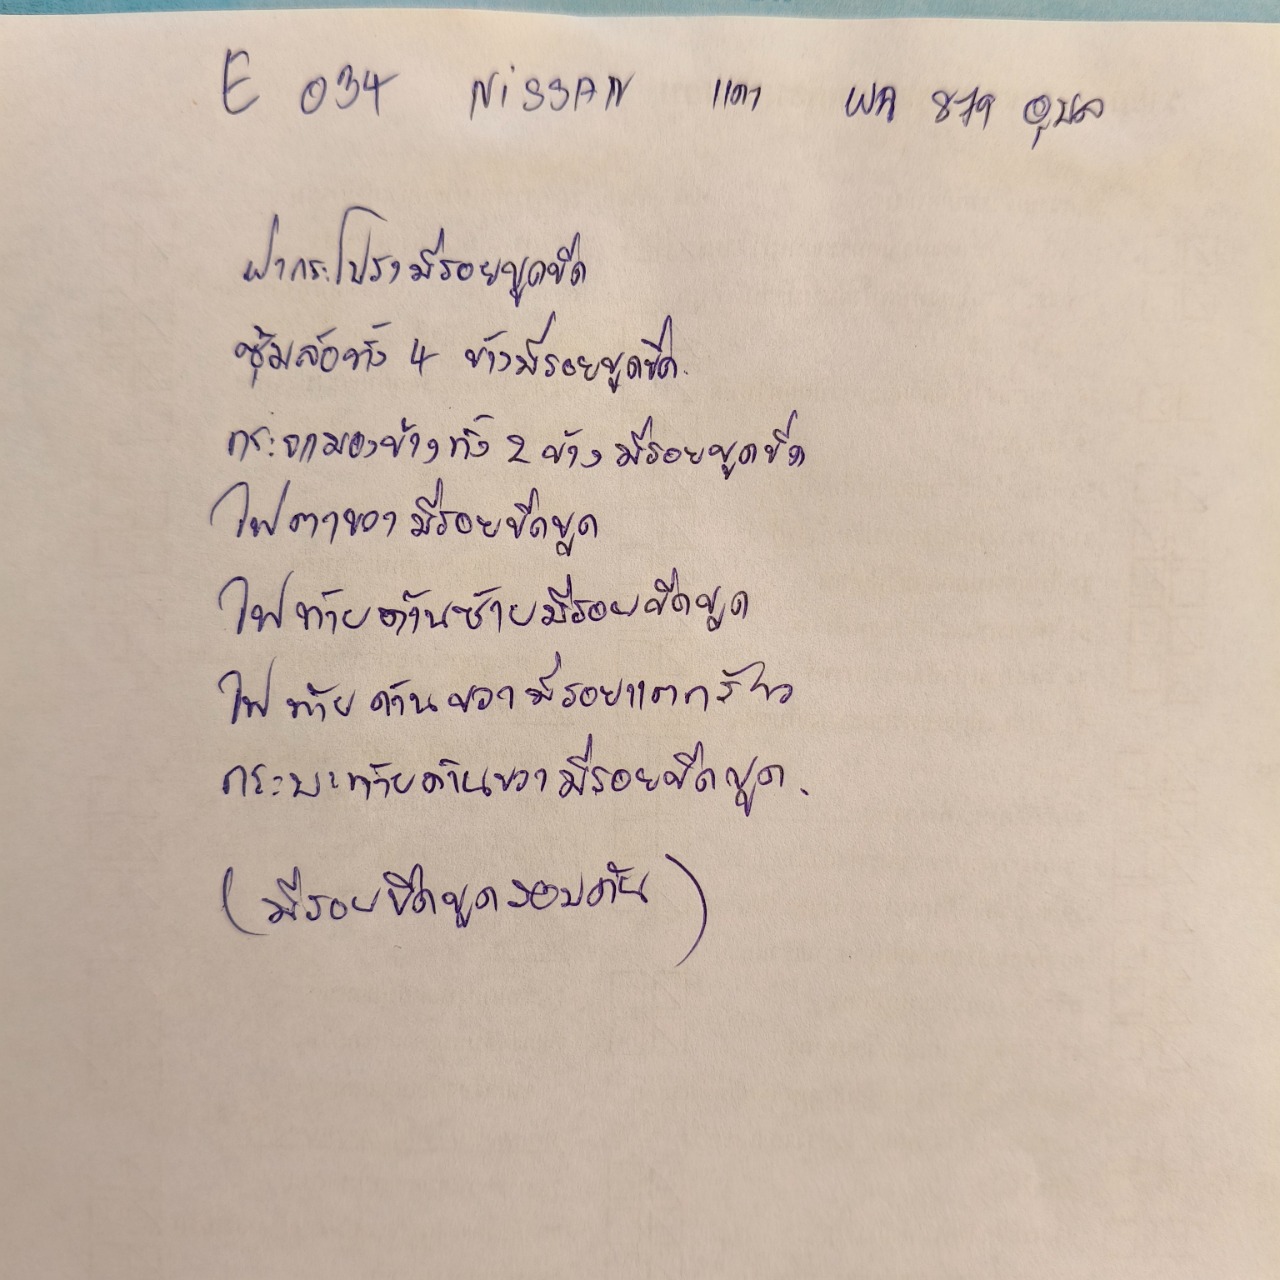 E 034 NiSSAN แดง ผค 879 อุบล
ฝากระโปรงมีรอยขูดขีด
ซุ้มล้อทั้ง 4 ข้างมีรอยขูดขีด.
กระจกมองข้างทั้ง 2 ข้าง มีรอยขูดขีด
ไฟตาขวา มีรอยขีดขูด
ไฟท้ายด้านซ้ายมีรอยขีดขูด
ไฟท้ายด้านขวามีรอยแตกร้าว
กระบะท้ายด้านขวามีรอยขีดขูด.
(มีรอยขีดขูดรอบคัน)